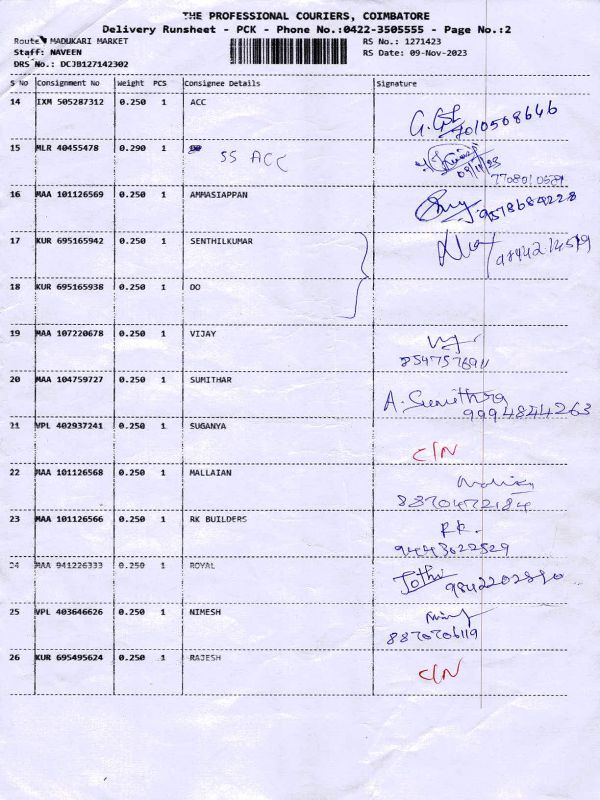 THE PROFESSIONAL COURIERS, COIMBATORE
Delivery Runsheet - PCK - Phone No.:0422-3505555 - Page No.:2
Route MADUKARI MARKET RS No.: 1271423
Staff: NAVEEN RS Date: 09-Nov-2023
DRS No.: DCJB127142302
S No Consignment No Weight PCS Consignee Details Signature
14 IXM 505287312 0.250 1 ACC 7010508646
15 MLR 40455478 0.290 1 SS ACC 09/11/23
16 MAA 101126569 0.250 1 AMMASIAPPAN 9578684228
17 KUR 695165942 0.250 1 SENTHILKUMAR
18 KUR 695165938 0.250 1 DO
19 MAA 107220678 0.250 1 VIJAY
20 MAA 104759727 0.250 1 SUMITHAR A. Sumithra 9994844263
21 VPL 402937241 0.250 1 SUGANYA C/N
22 MAA 101126568 0.250 1 MALLAIAN 8870472184
23 MAA 101126566 0.250 1 RK BUILDERS R.K. 9443022529
24 MAA 941226333 0.250 1 ROYAL Jothi
25 VPL 403646626 0.250 1 NIMESH 8870706119
26 KUR 695495624 0.250 1 RAJESH C/N